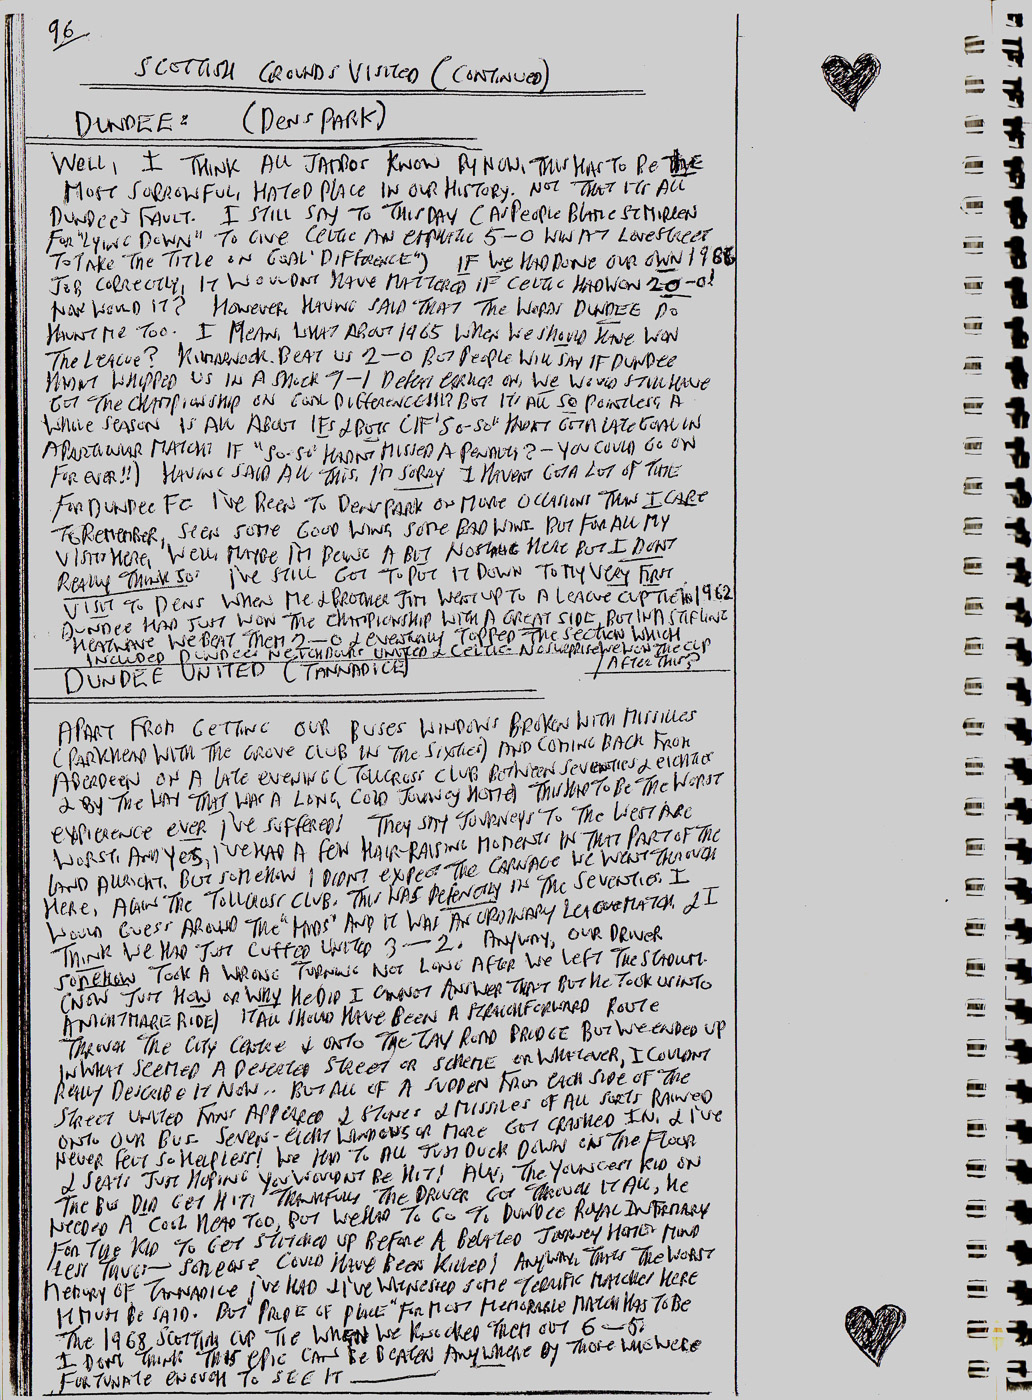 96
SCOTTISH GROUNDS VISITED (CONTINUED)
DUNDEE: (DENS PARK)
WELL, I THINK ALL JAMBOS KNOW BY NOW, THIS HAS TO BE THE
MOST SORROWFUL, HATED PLACE IN OUR HISTORY. NOT THAT IT'S ALL
DUNDEE'S FAULT. I STILL SAY TO THIS DAY (AS PEOPLE BLAME ST MIRREN
FOR "LYING DOWN" TO GIVE CELTIC AN EMPHATIC 5-0 WIN AT LOVE STREET
TO TAKE THE TITLE ON GOAL DIFFERENCE") IF WE HAD DONE OUR OWN 1986
JOB CORRECTLY, IT WOULDNT HAVE MATTERED IF CELTIC HAD WON 20-0!
NOW WOULD IT? HOWEVER, HAVING SAID THAT THE WORDS DUNDEE DO
HAUNT ME TOO. I MEAN, WHAT ABOUT 1965 WHEN WE SHOULD HAVE WON
THE LEAGUE? KILMARNOCK BEAT US 2-0 BUT PEOPLE WILL SAY IF DUNDEE
HADNT WHIPPED US IN A SHOCK 7-1 DEFEAT EARLIER ON, WE WOULD STILL HAVE
GOT THE CHAMPIONSHIP ON GOAL DIFFERENCE!!!? BUT IT'S ALL SO POINTLESS A
WHOLE SEASON IS ALL ABOUT IFS & BUTS (IF "SO-SO" HADNT GOT A LATE GOAL IN
A PARTICULAR MATCH? IF "SO-SO" HADNT MISSED A PENALTY? - YOU COULD GO ON
FOR EVER!!) HAVING SAID ALL THIS, I'M SORRY I HAVENT GOT A LOT OF TIME
FOR DUNDEE FC I'VE BEEN TO DENS PARK ON MORE OCCASIONS THAN I CARE
TO REMEMBER, SEEN SOME GOOD WINS, SOME BAD WINS BUT FOR ALL MY
VISITS HERE, WELL, MAYBE I'M BEING A BIT NOSTALGIC HERE BUT I DONT
REALLY THINK SO. I'VE STILL GOT TO PUT IT DOWN TO MY VERY FIRST
VISIT TO DENS WHEN ME & BROTHER JIM WENT UP TO A LEAGUE CUP TIE IN 1962
DUNDEE HAD JUST WON THE CHAMPIONSHIP WITH A GREAT SIDE, BUT IN A STIFLING
HEATWAVE WE BEAT THEM 2-0 & EVENTUALLY TOPPED THE SECTION WHICH
INCLUDED DUNDEE'S NEIGHBOURS UNITED & CELTIC. NO SURPRISE WE WON THE CUP
AFTER THIS?
DUNDEE UNITED (TANNADICE)
APART FROM GETTING OUR BUSES WINDOWS BROKEN WITH MISSILES
(PARKHEAD WITH THE GROVE CLUB IN THE SIXTIES) AND COMING BACK FROM
ABERDEEN ON A LATE EVENING (TOLLCROSS CLUB BETWEEN SEVENTIES & EIGHTIES
& BY THE WAY THAT WAS A LONG, COLD JOURNEY HOME) THIS HAD TO BE THE WORST
EXPIERENCE EVER I'VE SUFFERED! THEY SAY JOURNEYS TO THE WEST ARE
WORST. AND YES, I'VE HAD A FEW HAIR-RAISING MOMENTS IN THAT PART OF THE
LAND ALLRIGHT. BUT SOMEHOW I DIDNT EXPECT THE CARNAGE WE WENT THROUGH
HERE, AGAIN THE TOLLCROSS CLUB. THIS WAS DEFENETLY IN THE SEVENTIES. I
WOULD GUESS AROUND THE "MIDS" AND IT WAS AN ORDINARY LEAGUE MATCH, & I
THINK WE HAD JUST CUFFED UNITED 3-2. ANYWAY, OUR DRIVER
SOMEHOW TOOK A WRONG TURNING NOT LONG AFTER WE LEFT THE STADIUM.
(NOW JUST HOW OR WHY HE DID I CANNOT ANSWER THAT BUT HE TOOK US INTO
A NIGHTMARE RIDE) IT ALL SHOULD HAVE BEEN A STRAIGHTFORWARD ROUTE
THROUGH THE CITY CENTRE & ONTO THE TAY ROAD BRIDGE BUT WE ENDED UP
IN WHAT SEEMED A DESERTED STREET OR SCHEME OR WHATEVER, I COULDNT
REALLY DESCRIBE IT NOW.. BUT ALL OF A SUDDEN FROM EACH SIDE OF THE
STREET UNITED FANS APPEARED & STONES & MISSILES OF ALL SORTS RAINED
ONTO OUR BUS. SEVEN-EIGHT WINDOWS OR MORE GOT CRASHED IN, & I'VE
NEVER FELT SO HELPLESS! WE HAD TO ALL JUST DUCK DOWN ON THE FLOOR
& SEATS JUST HOPING YOU WOULDNT BE HIT! ALAS, THE YOUNGEST KID ON
THE BUS DID GET HIT! THANKFULLY THE DRIVER GOT THROUGH IT ALL, HE
NEEDED A COOL HEAD TOO, BUT WE HAD TO GO TO DUNDEE ROYAL INFIRMARY
FOR THE KID TO GET STITCHED UP BEFORE A BELATED JOURNEY HOME! MIND
LESS THUGS - SOMEONE COULD HAVE BEEN KILLED! ANYWAY, THATS THE WORST
MEMORY OF TANNADICE I'VE HAD & I'VE WITNESSED SOME TERRIFIC MATCHES HERE
IT MUST BE SAID. BUT "PRIDE OF PLACE" FOR MOST MEMORABLE MATCH HAS TO BE
THE 1968 SCOTTISH CUP TIE WHEN WE KNOCKED THEM OUT 6-5.
I DONT THINK THIS EPIC CAN BE BEATEN ANYWHERE BY THOSE WHO WERE
FORTUNATE ENOUGH TO SEE IT